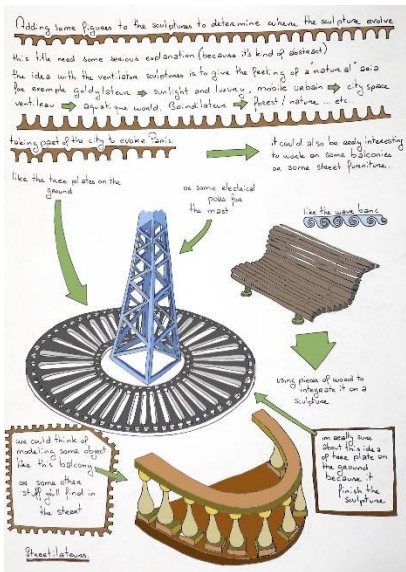 Adding some figures to the sculptures to determine where the sculpture evolve
this title need some serious explanation (because it's kind of abstract)
the idea with the ventilator sculptures is to give the feeling of a "natural" aeia
for exemple goldylateur → sunlight and luxury, mobile urbain → city space
ventileau → aquatique world. Baindilateur → forest / nature ... etc.
taking part of the city to evoke Paris.
it could also be really interesting
to work on some balconies
or some street furniture.
like the tree plates on the
ground
or some electrical
poles for
the mast
like the wave banc
using pieces of wood to
integrate it on a
sculpture
we could think of
modeling some object
like this balcony
or some other
stuff you'll find in
the street
im really sure
about this idea
of tree plate on
the ground
because it
finish the
sculpture
Streetilateurs.